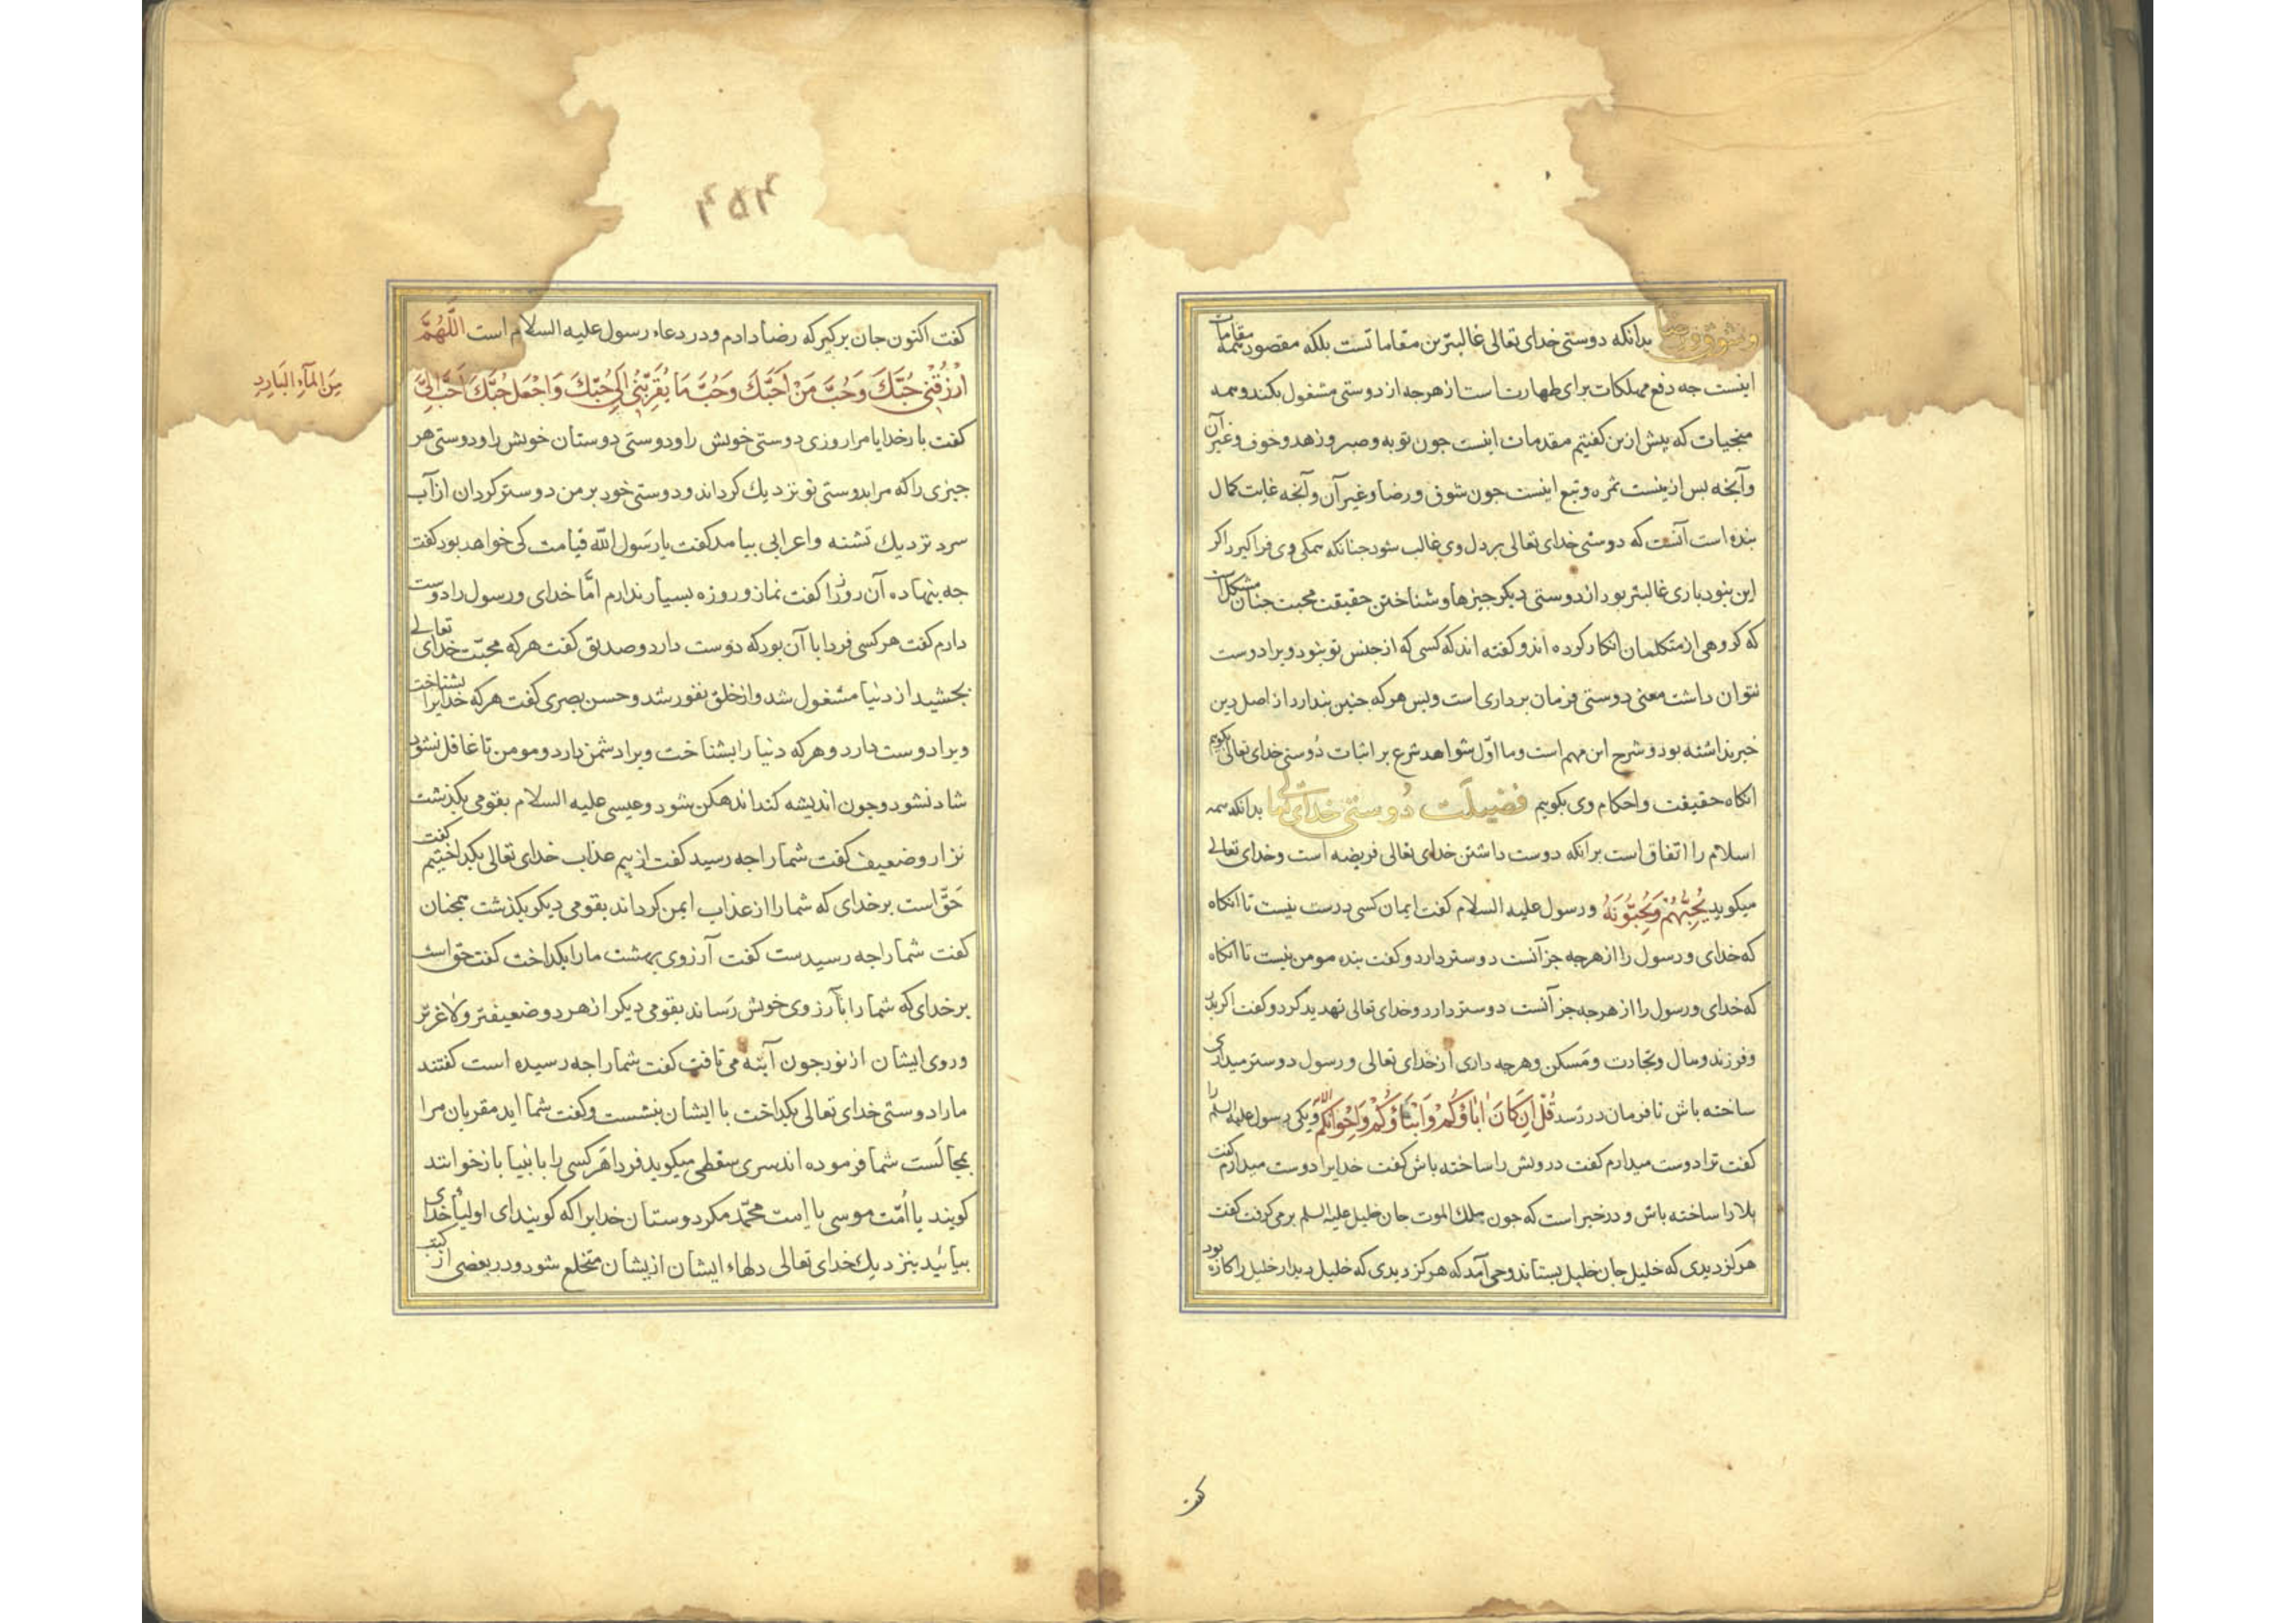 وشوق و رضا بدانکه دوستی خدای تعالی غالبترین مقاماتست بلکه مقصود همه مقامات
اینست جه دفع مهلکات برای طهارت است از هرجه از دوستی مشغول بکند و همه
منجیات که پیش ازین کفتیم مقدمات اینست جون توبه و صبر و زهد و خوف و غیر آن
وآنجه بس ازینست ثمره و تبع اینست جون شوق و رضا و غیر آن وآنجه غایت کمال
بنده است آنست که دوستی خدای تعالی بر دل وی غالب شود جنانکه همکی وی فرا کیرد اکر
این نبود باری غالبتر بود از دوستی دیکر جیزها و شناختن حقیقت محبت جنان مشکلست
که کروهی از متکلمان انکار کرده اند و کفته اند که کسی که از جنس تو نبود ویرا دوست
نتوان داشت معنی دوستی فرمان برداری است و بس هرکه جنین بندارد از اصل دین
خبر نداشته بود و شرح این مهم است و ما اوّل شواهد شرع بر اثبات دُوستی خدای تعالی بکویم
انکاه حقیقت و احکام وی بکویم فضیلَت دُوستی خدای تعالی بدانکه همه
اسلام را اتفاق است برانکه دوست داشتن خدای تعالی فریضه است و خدای تعالی
میکوید یُحِبُّهُمْ وَیُحِبُّوَنَهُ و رسول علیه السلام کفت ایمان کسی درست نیست تا انکاه
که خدای و رسول را از هرجه جز آنست دوستر دارد و کفت بنده مومن نیست تا انکاه
که خدای و رسول را از هرجه جز آنست دوستر دارد و خدای تعالی تهدید کرد و کفت اکر بدر
و فرزند و مال و تجارت و مَسکن و هرجه داری از خدای تعالی و رسول دوستر میداری
ساخته باش تا فرمان در رَسد قُلْ اِنْ کَانَ اٰبَاؤُکُمْ وَاَبْنَاؤُکُمْ وَاِخْوَانُکُمْ ویکی رسول علیه السلم را
کفت ترا دوست میدارم کفت درویش را ساخته باش کفت خدایرا دوست میدارم کفت
بلا را ساخته باش و در خبر است که جون ملک الموت جان خلیل علیه السلم بر می کرفت کفت
هرکز دیدی که خلیل جان خلیل بستاند وحی آمد که هرکز دیدی که خلیل دیدار خلیل را کاره بود
کفت
کفت اکنون جان برکیر که رضا دادم و در دعاء رسول علیه السلام است اَللّٰهُمَّ
اُرْزُقْنِی حُبَّكَ وَحُبَّ مَنْ اَحَبَّكَ وَحُبَّ مَا یُقَرِّبُنِی اِلٰی حُبِّكَ وَاجْعَل حُبَّكَ اَحَبَّ اِلَیَّ
مِنَ الْمَآءِ الْبَارِدِ
کفت بار خدایا مرا روزی دوستی خویش را و دوستی دوستان خویش را و دوستی هر
جیزی را که مرا بدوستی تو نزدیك کرداند و دوستی خود بر من دوستر کردان از آب
سرد نزدیك تشنه و اعرابی بیامد کفت یا رَسول الله قیامت کی خواهد بود کفت
جه بنهاده آن روز را کفت نماز و روزه بسیار ندارم امّا خدای و رسول را دوست
دارم کفت هر کسی فردا با آن بود که دوست دارد و صدیق کفت هرکه محبّت خدای تعالی
بجشید از دنیا مشغول شد و از خلق نفور شد و حسن بصری کفت هرکه خدایرا بشناخت
ویرا دوست دارد و هرکه دنیا را بشناخت ویرا دشمن دارد و مومن تا غافل نشود
شاد نشود و جون اندیشه کند اندهکن شود و عیسی علیه السلام بقومی بکذشت
نزار و ضعیف کفت شما را جه رسید کفت از بیم عذاب خدای تعالی بکداختیم کفت
حَقّ است بر خدای که شما را از عذاب ایمن کرداند بقومی دیکر بکذشت همجنان
کفت شما را جه رسیدست کفت آرزوی بهشت ما را بکداخت کفت حق است
بر خدای که شما را بآرزوی خویش رَساند بقومی دیکر از هر دو ضعیفتر و لاغرتر
و روی ایشان از نور جون آینه می تافت کفت شما را جه رسیده است کفتند
ما را دوستی خدای تعالی بکداخت با ایشان بنشست و کفت شما اید مقربان مرا
بمجالَست شما فرموده اند سری سقطی میکوید فردا هر کسی را بانبیا باز خوانند
کویند یا اُمّت موسی یا امت محمّد مکر دوستان خدایرا که کویند ای اولیاء خدای
بیائید بنزدیك خدای تعالی دلهاء ایشان ازیشان منخلع شود و در بعضی از کتب